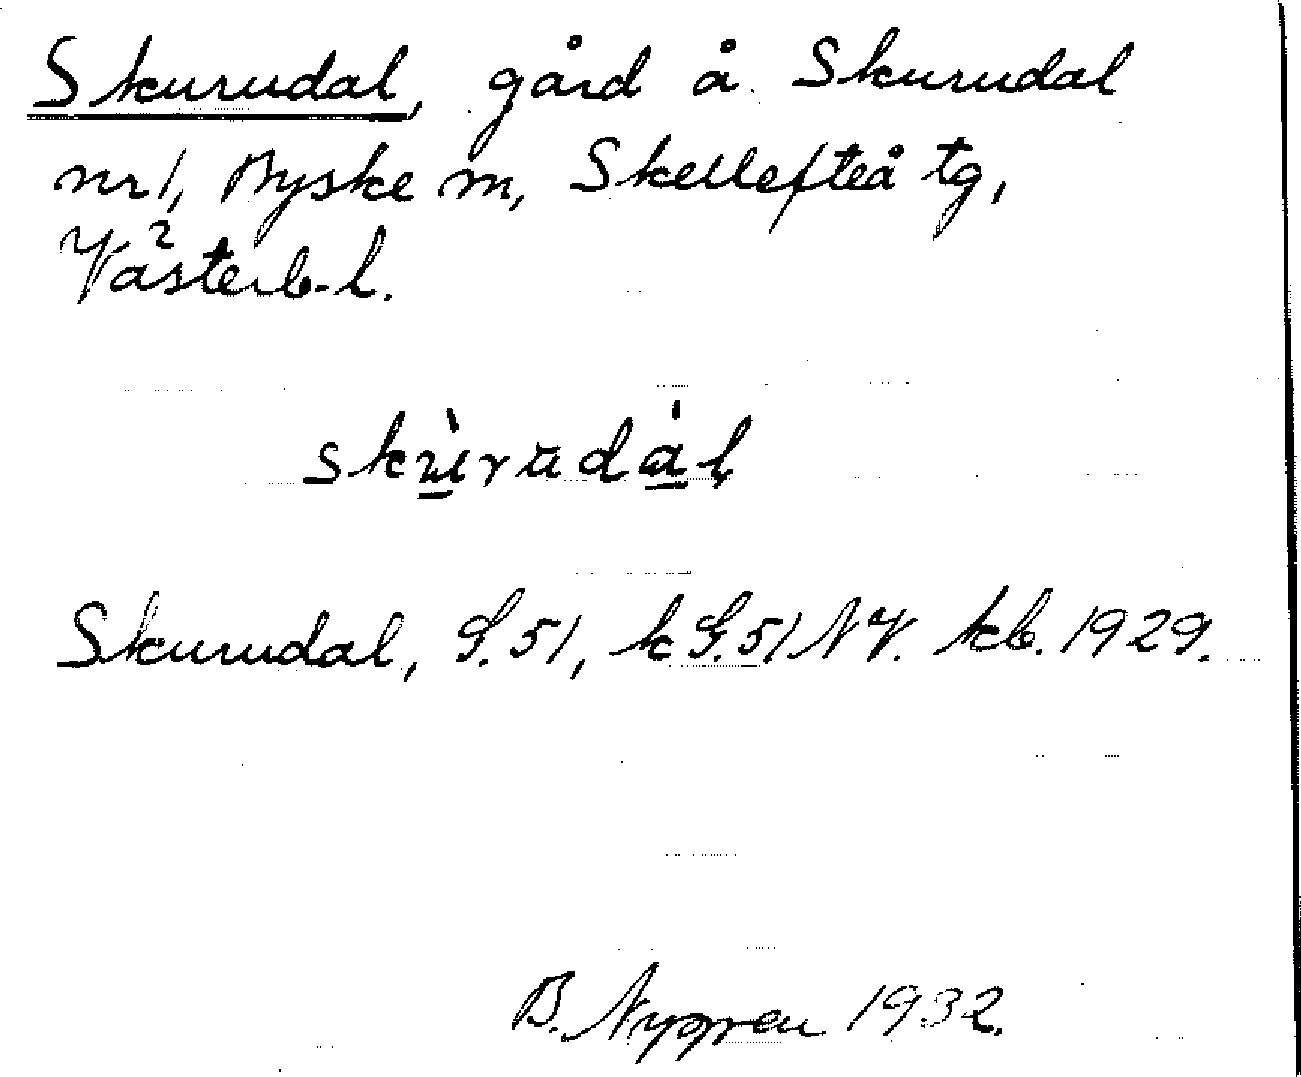 Skurudal, gård å Skurudal
nr 1, Byske sn, Skellefteå tg,
Västerb. l.
skùrudál
Skurudal, G. 51, k G. 51 NV. kb. 1929.
B. Nygren 1932.